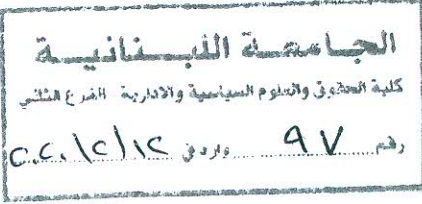 الجامعة اللبنانية
كلية الحقوق والعلوم السياسية والادارية الفرع الثاني
رقم ٩٧ وارد في ١٢/٢/٢٠٢٠